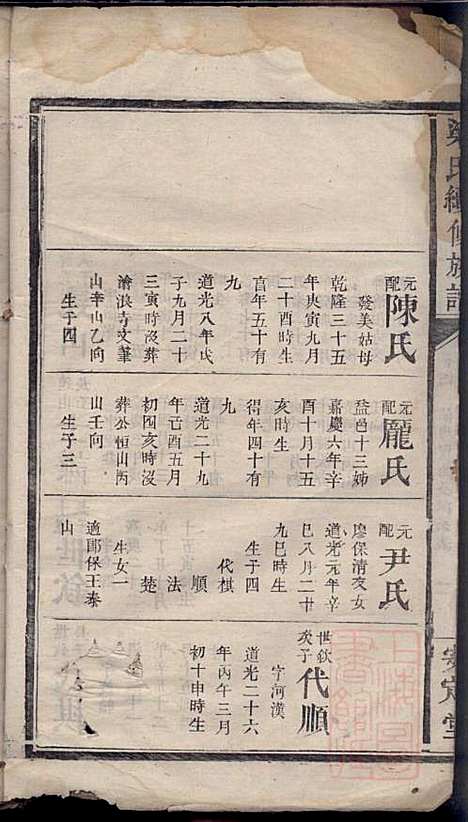 梁氏續修族譜
安定堂
元
配
陳氏
發美姑母
乾隆三十五
年庚寅九月
二十酉時生
言年五十有
九
道光八年戊
子九月二十
三寅時沒葬
滄浪寺文筆
山辛山乙向
生子四
元
配
龐氏
益邑十三姊
嘉慶六年辛
酉十月十五
亥時生
得年四十有
九
道光二十九
年己酉五月
初四亥時沒
葬公恒山丙
山壬向
生子三
元
配
尹氏
廖保清亥女
道光元年辛
巳八月二十
九巳時生
生子四
代棋
順
法
楚
生女一
適郎保王泰
山
世欽
次子
代順
字河漢
道光二十六
年丙午三月
初十申時生